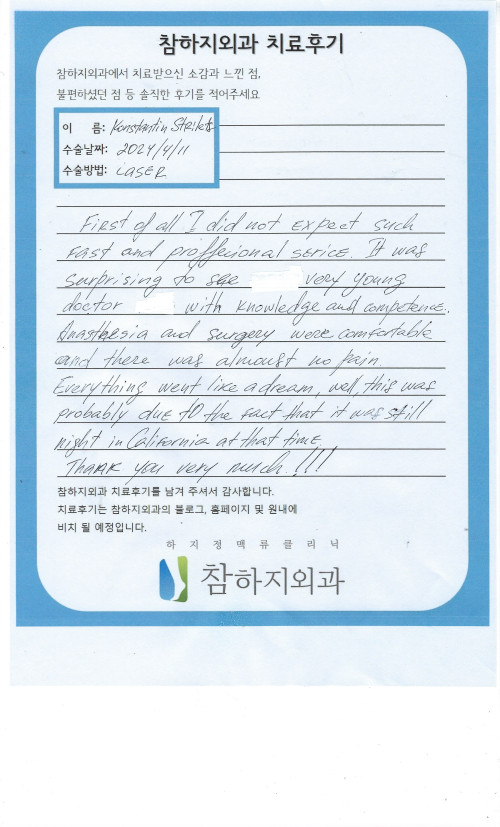 참하지외과 치료후기
참하지외과에서 치료받으신 소감과 느낀 점,
불편하셨던 점 등 솔직한 후기를 적어주세요
이 름: Konstantin
수술날짜: 2024/4/11
수술방법: LASER
First of all I did not expect such
fast and proffecional serice. It was
surprising to see very young
doctor with knowledge and competence.
Anasthesia and surgery were comfortable
and there was almoust no pain.
Everything went like a dream, well, this was
probably due to the fact that it was still
night in California at that time
Thank you very much!!!
참하지외과 치료후기를 남겨 주셔서 감사합니다.
치료후기는 참하지외과의 블로그, 홈페이지 및 원내에
비치 될 예정입니다.
하지정맥류클리닉
참하지외과